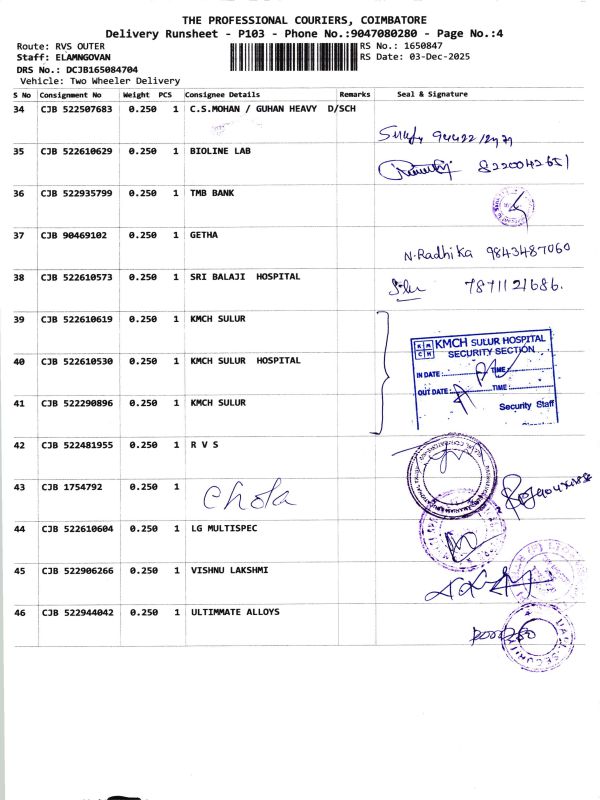 THE PROFESSIONAL COURIERS, COIMBATORE
Delivery Runsheet - P103 - Phone No.:9047080280 - Page No.:4
Route: RVS OUTER
RS No.: 1650847
Staff: ELAMNGOVAN
RS Date: 03-Dec-2025
DRS No.: DCJB165084704
Vehicle: Two Wheeler Delivery
S No Consignment No Weight PCS Consignee Details Remarks Seal & Signature
34 CJB 522507683 0.250 1 C.S.MOHAN / GUHAN HEAVY D/SCH
35 CJB 522610629 0.250 1 BIOLINE LAB
8220042651
36 CJB 522935799 0.250 1 TMB BANK
37 CJB 90469102 0.250 1 GETHA
N-Radhika 9843487060
38 CJB 522610573 0.250 1 SRI BALAJI HOSPITAL
7871121686.
39 CJB 522610619 0.250 1 KMCH SULUR
KMCH SULUR HOSPITAL
SECURITY SECTION
40 CJB 522610530 0.250 1 KMCH SULUR HOSPITAL
IN DATE: TIME:
OUT DATE: TIME:
41 CJB 522290896 0.250 1 KMCH SULUR
Security Staff
42 CJB 522481955 0.250 1 R V S
43 CJB 1754792 0.250 1 Chola
44 CJB 522610604 0.250 1 LG MULTISPEC
45 CJB 522906266 0.250 1 VISHNU LAKSHMI
46 CJB 522944042 0.250 1 ULTIMMATE ALLOYS